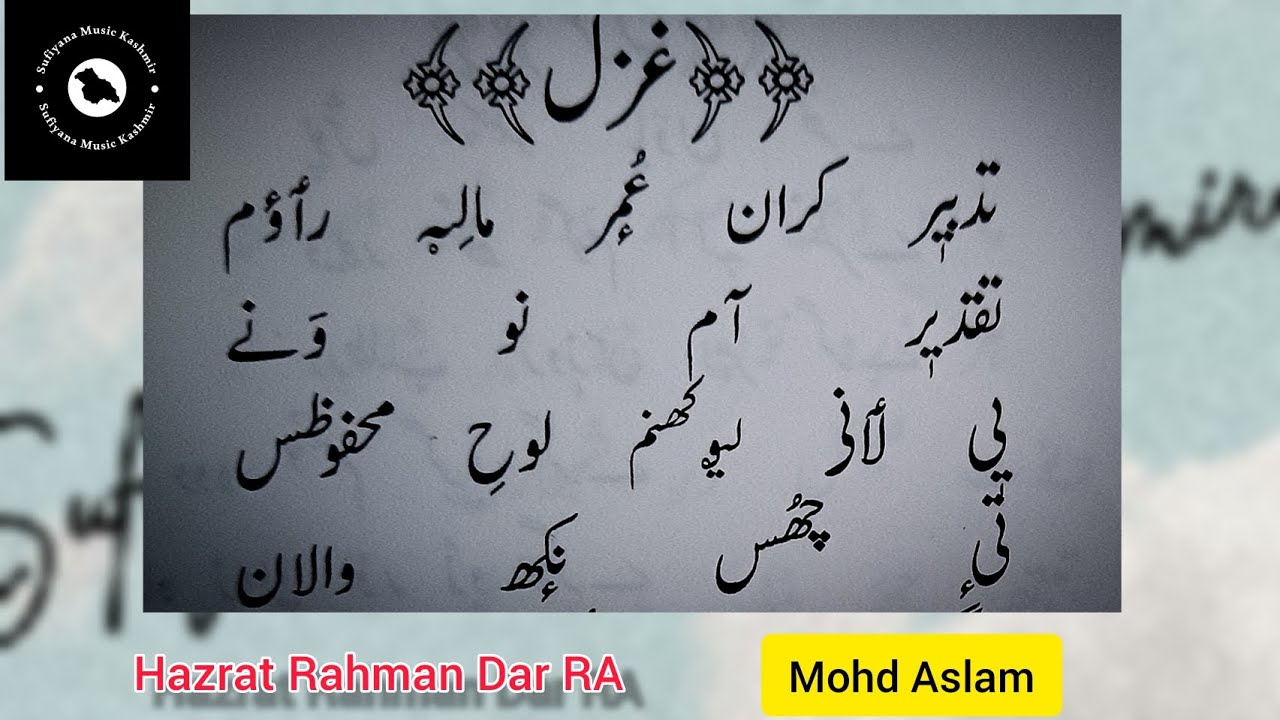 Sufiyana Music Kashmir
Sufiyana Music Kashmir
غزل
تدبیر کران عُمٕر مالِہٕ رأوٕم
تقدیر آم نو وَنے
یی لأنی لیوٗکھنم لوحِ محفوظس
تی چھُس نکھٕ والان
Hazrat Rahman Dar RA
Mohd Aslam